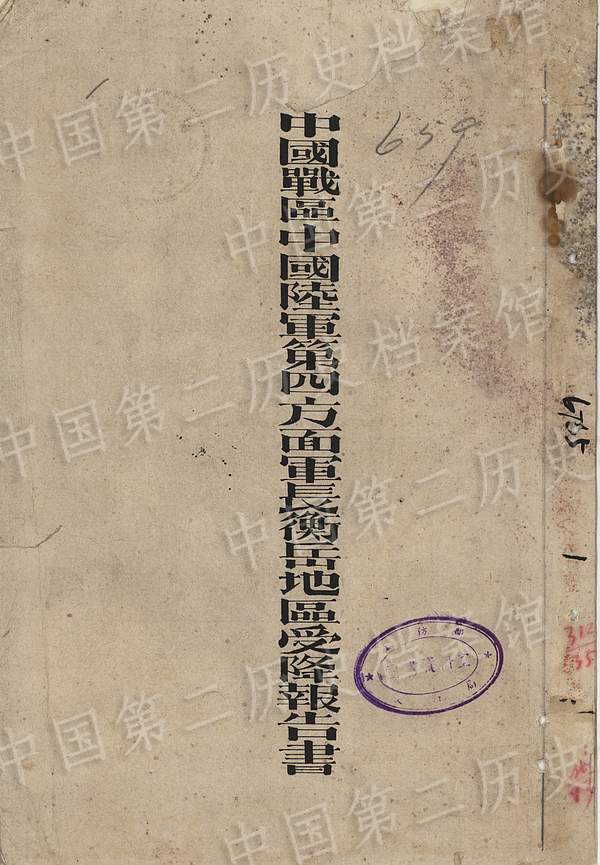 中國戰區中國陸軍第四方面軍長衡岳地區受降報告書
659
6735
1
312
35
中国第二历史档案馆
中国第二历史
中国第二历史档案馆
中国第二历史
中国第二历史档案馆
中国第二历史